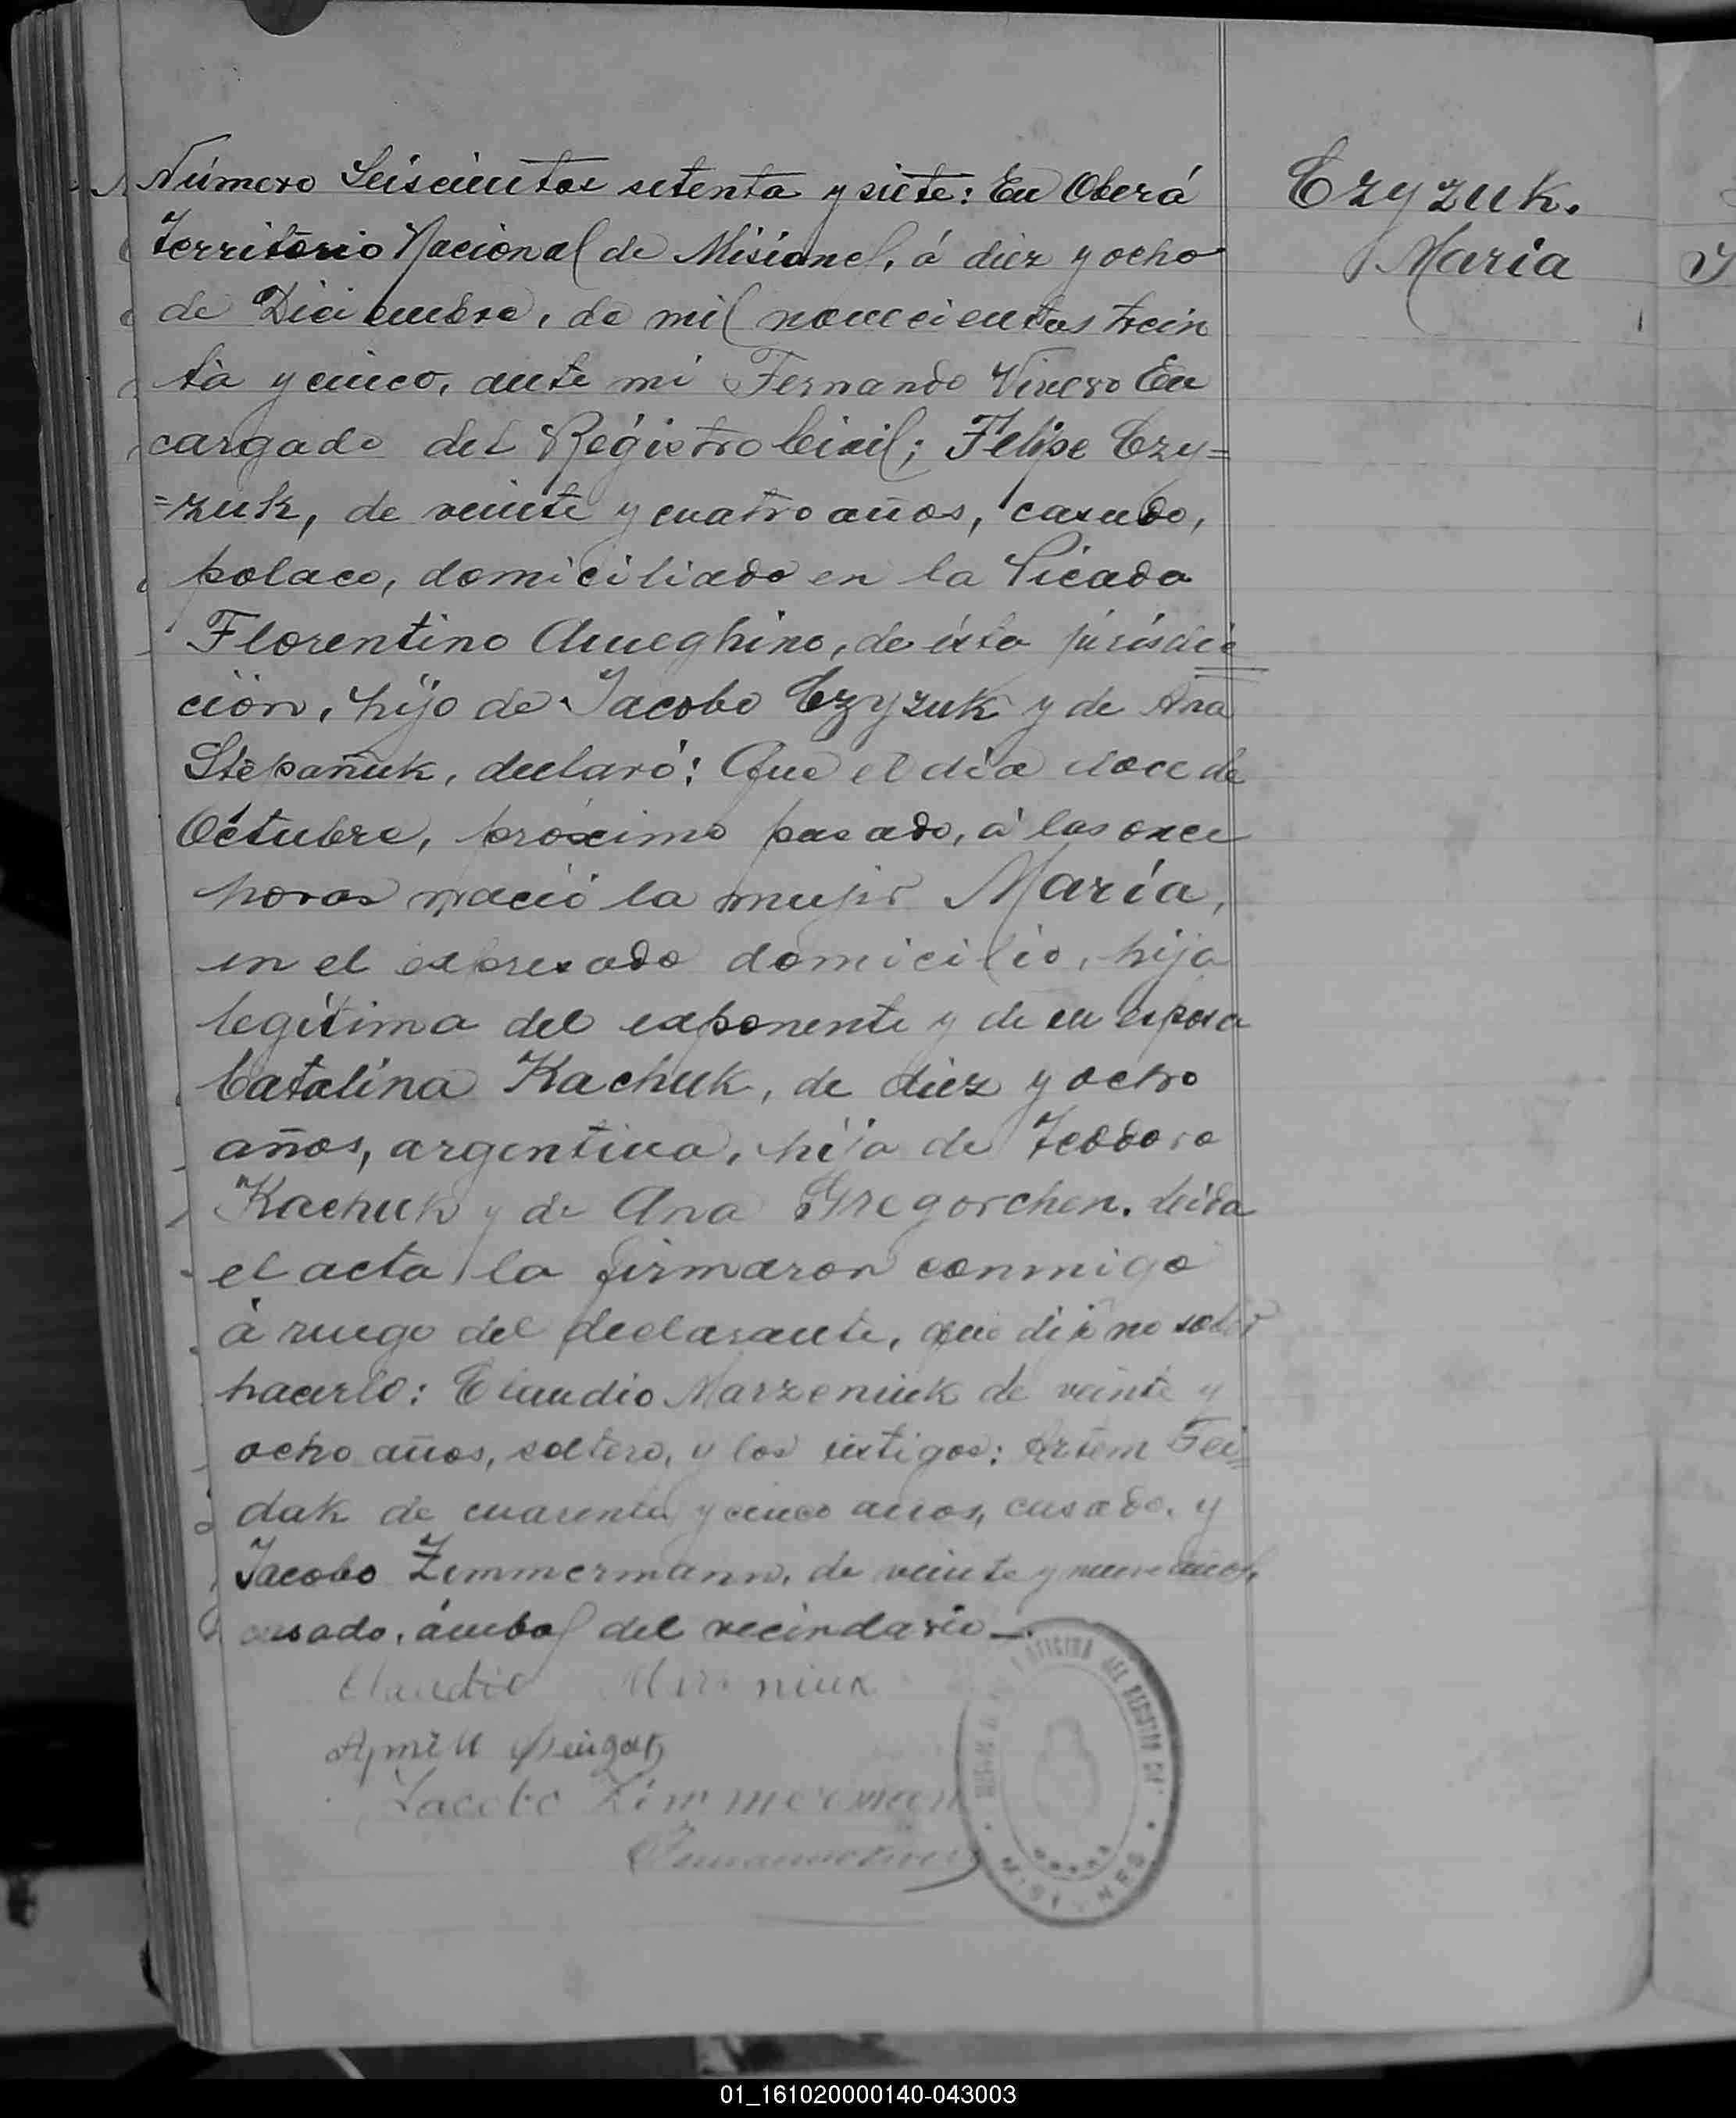 Número Seiscientos setenta y siete: En Oberá
Czyzuk.
María
Territorio Nacional de Misiones, á diez y ocho
de Diciembre, de mil novecientos trein
ta y cinco, ante mi Fernando Vivero En
cargado del Régistro Civil; Felipe Czy=
=zuk, de veinte y cuatro años, casado,
polaco, domiciliado en la Picada
Florentino Ameghino, de ésta jurisdic
ción, hijo de Jacobo Czyzuk y de Ana
Stepañuk, declaró: Que el día doce de
Octubre, próximo pasado, á las once
horas nació la mujer María,
en el expresado domicilio, hija
legítima del exponente y de su esposa
Catalina Kachuk, de diez y ocho
años, argentina, hija de Teodoro
Kachuk y de Ana Gregorchen. Leida
el acta la firmaron conmigo
á ruego del declarante, que dijo no saber
hacerlo: Claudio Marzeniuk de veinte y
ocho años, soltero, y los testigos: Artem Fei=
dak de cuarenta y cinco años, casado. y
Jacobo Zimmermann, de veinte y nueve años,
casado, ámbos del vecindario —.
Claudio
Jacobo Zimmerman
OFICINA DEL REGISTRO CIVIL
MISIONES
01_161020000140-043003